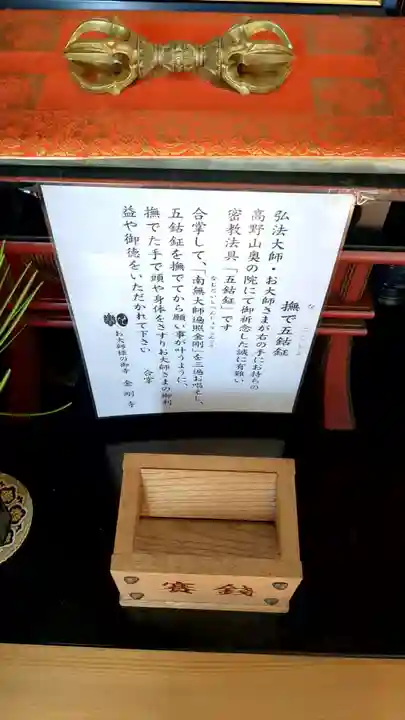 撫で五鈷鉦
な ご こ しょう
弘法大師・お大師さまが右の手にお持ちの
高野山奥の院にて御祈念した誠に有難い
密教法具「五鈷鉦」です
合掌して、「南無大師遍照金剛」を三遍お唱えし、
なむだいしへんじょうこんごう
五鈷鉦を撫でてから願い事が叶うように、
撫でた手で頭や身体をさすりお大師さまの御利
益や御徳をいただかれて下さい
合掌
お大師様の御寺 金剛寺
賽銭